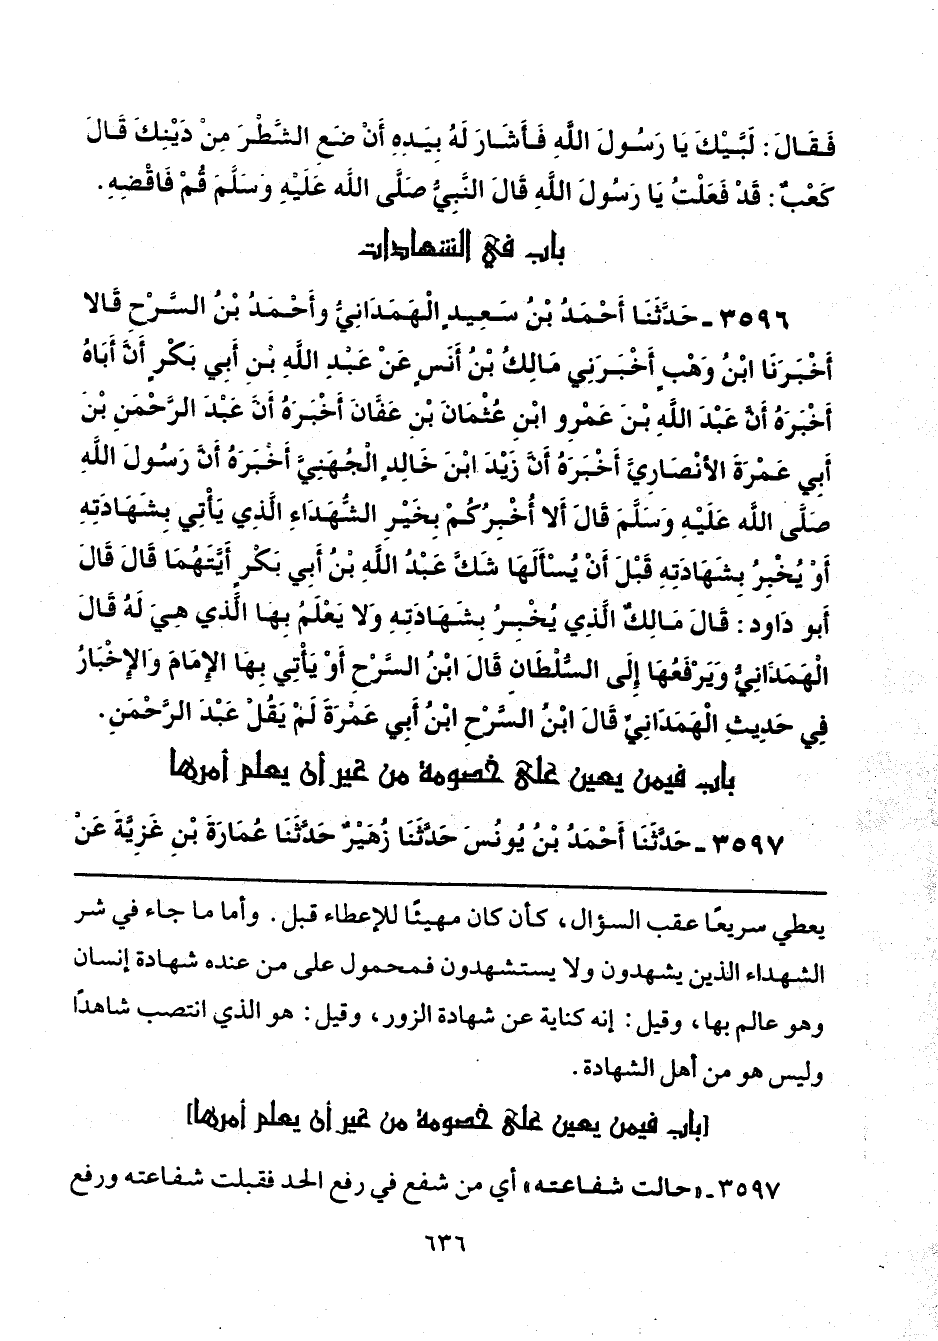 فَقَالَ: لَبَّيْكَ يَا رَسُولَ اللَّهِ فَأَشَارَ لَهُ بِيَدِهِ أَنْ ضَعِ الشَّطْرَ مِنْ دَيْنِكَ قَالَ
كَعْبٌ: قَدْ فَعَلْتُ يَا رَسُولَ اللَّهِ قَالَ النَّبِيُّ صَلَّى اللَّه عَلَيْهِ وَسَلَّمَ قُمْ فَاقْضِهِ.
باب في الشهادات
٣٥٩٦ - حَدَّثَنَا أَحْمَدُ بْنُ سَعِيدٍ الْهَمَدَانِيُّ وأَحْمَدُ بْنُ السَّرْحِ قَالا
أَخْبَرَنَا ابْنُ وَهْبٍ أَخْبَرَنِي مَالِكُ بْنُ أَنَسٍ عَنْ عَبْدِ اللَّهِ بْنِ أَبِي بَكْرٍ أَنَّ أَبَاهُ
أَخْبَرَهُ أَنَّ عَبْدَ اللَّهِ بْنَ عَمْرِو ابْنِ عُثْمَانَ بْنِ عَفَّانَ أَخْبَرَهُ أَنَّ عَبْدَ الرَّحْمَنِ بْنَ
أَبِي عَمْرَةَ الأَنْصَارِيَّ أَخْبَرَهُ أَنَّ زَيْدَ ابْنَ خَالِدٍ الْجُهَنِيَّ أَخْبَرَهُ أَنَّ رَسُولَ اللَّهِ
صَلَّى اللَّه عَلَيْهِ وَسَلَّمَ قَالَ أَلا أُخْبِرُكُمْ بِخَيْرِ الشُّهَدَاءِ الَّذِي يَأْتِي بِشَهَادَتِهِ
أَوْ يُخْبِرُ بِشَهَادَتِهِ قَبْلَ أَنْ يُسْأَلَهَا شَكَّ عَبْدُ اللَّهِ بْنُ أَبِي بَكْرٍ أَيَّتَهُمَا قَالَ قَالَ
أَبو دَاود: قَالَ مَالِكٌ الَّذِي يُخْبِرُ بِشَهَادَتِهِ وَلا يَعْلَمُ بِهَا الَّذِي هِيَ لَهُ قَالَ
الْهَمَدَانِيُّ وَيَرْفَعُهَا إِلَى السُّلْطَانِ قَالَ ابْنُ السَّرْحِ أَوْ يَأْتِي بِهَا الإِمَامَ وَالإِخْبَارُ
فِي حَدِيثِ الْهَمَدَانِيِّ قَالَ ابْنُ السَّرْحِ ابْنُ أَبِي عَمْرَةَ لَمْ يَقُلْ عَبْدَ الرَّحْمَنِ.
باب فيمن يعين على خصومة من غير أن يعلم أمرها
٣٥٩٧ - حَدَّثَنَا أَحْمَدُ بْنُ يُونُسَ حَدَّثَنَا زُهَيْرٌ حَدَّثَنَا عُمَارَةَ بْنِ غَزِيَّةَ عَنْ
يعطي سريعًا عقب السؤال، كأن كان مهيئًا للإعطاء قبل. وأما ما جاء في شر
الشهداء الذين يشهدون ولا يستشهدون فمحمول على من عنده شهادة إنسان
وهو عالم بها، وقيل: إنه كناية عن شهادة الزور، وقيل: هو الذي انتصب شاهدًا
وليس هو من أهل الشهادة.
[باب فيمن يعين على خصومة من غير أن يعلم أمرها]
٣٥٩٧ - «حالت شفاعته» أي من شفع في رفع الحد فقبلت شفاعته ورفع
٦٣٦